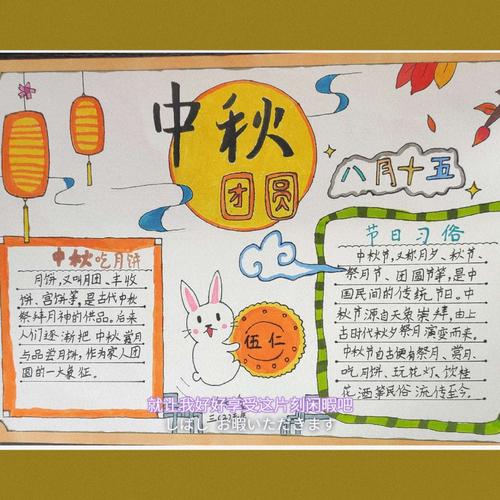 中秋
团圆
八月十五
中秋吃月饼
月饼，又叫月团、丰收
饼、宫饼等，是古代中秋
祭拜月神的供品。后来
人们逐渐把中秋赏月
与品尝月饼，作为家人团
圆的一大象征。
伍仁
节日习俗
中秋节，又称月夕、秋节、
祭月节、团圆节等，是中
国民间的传统节日。中
秋节源自天象崇拜，由上
古时代秋夕祭月演变而来。
中秋节自古便有祭月、赏月、
吃月饼、玩花灯、饮桂
花酒等民俗，流传至今。
就让我好好享受这片刻闲暇吧
しばし お暇いただきます
三(2)